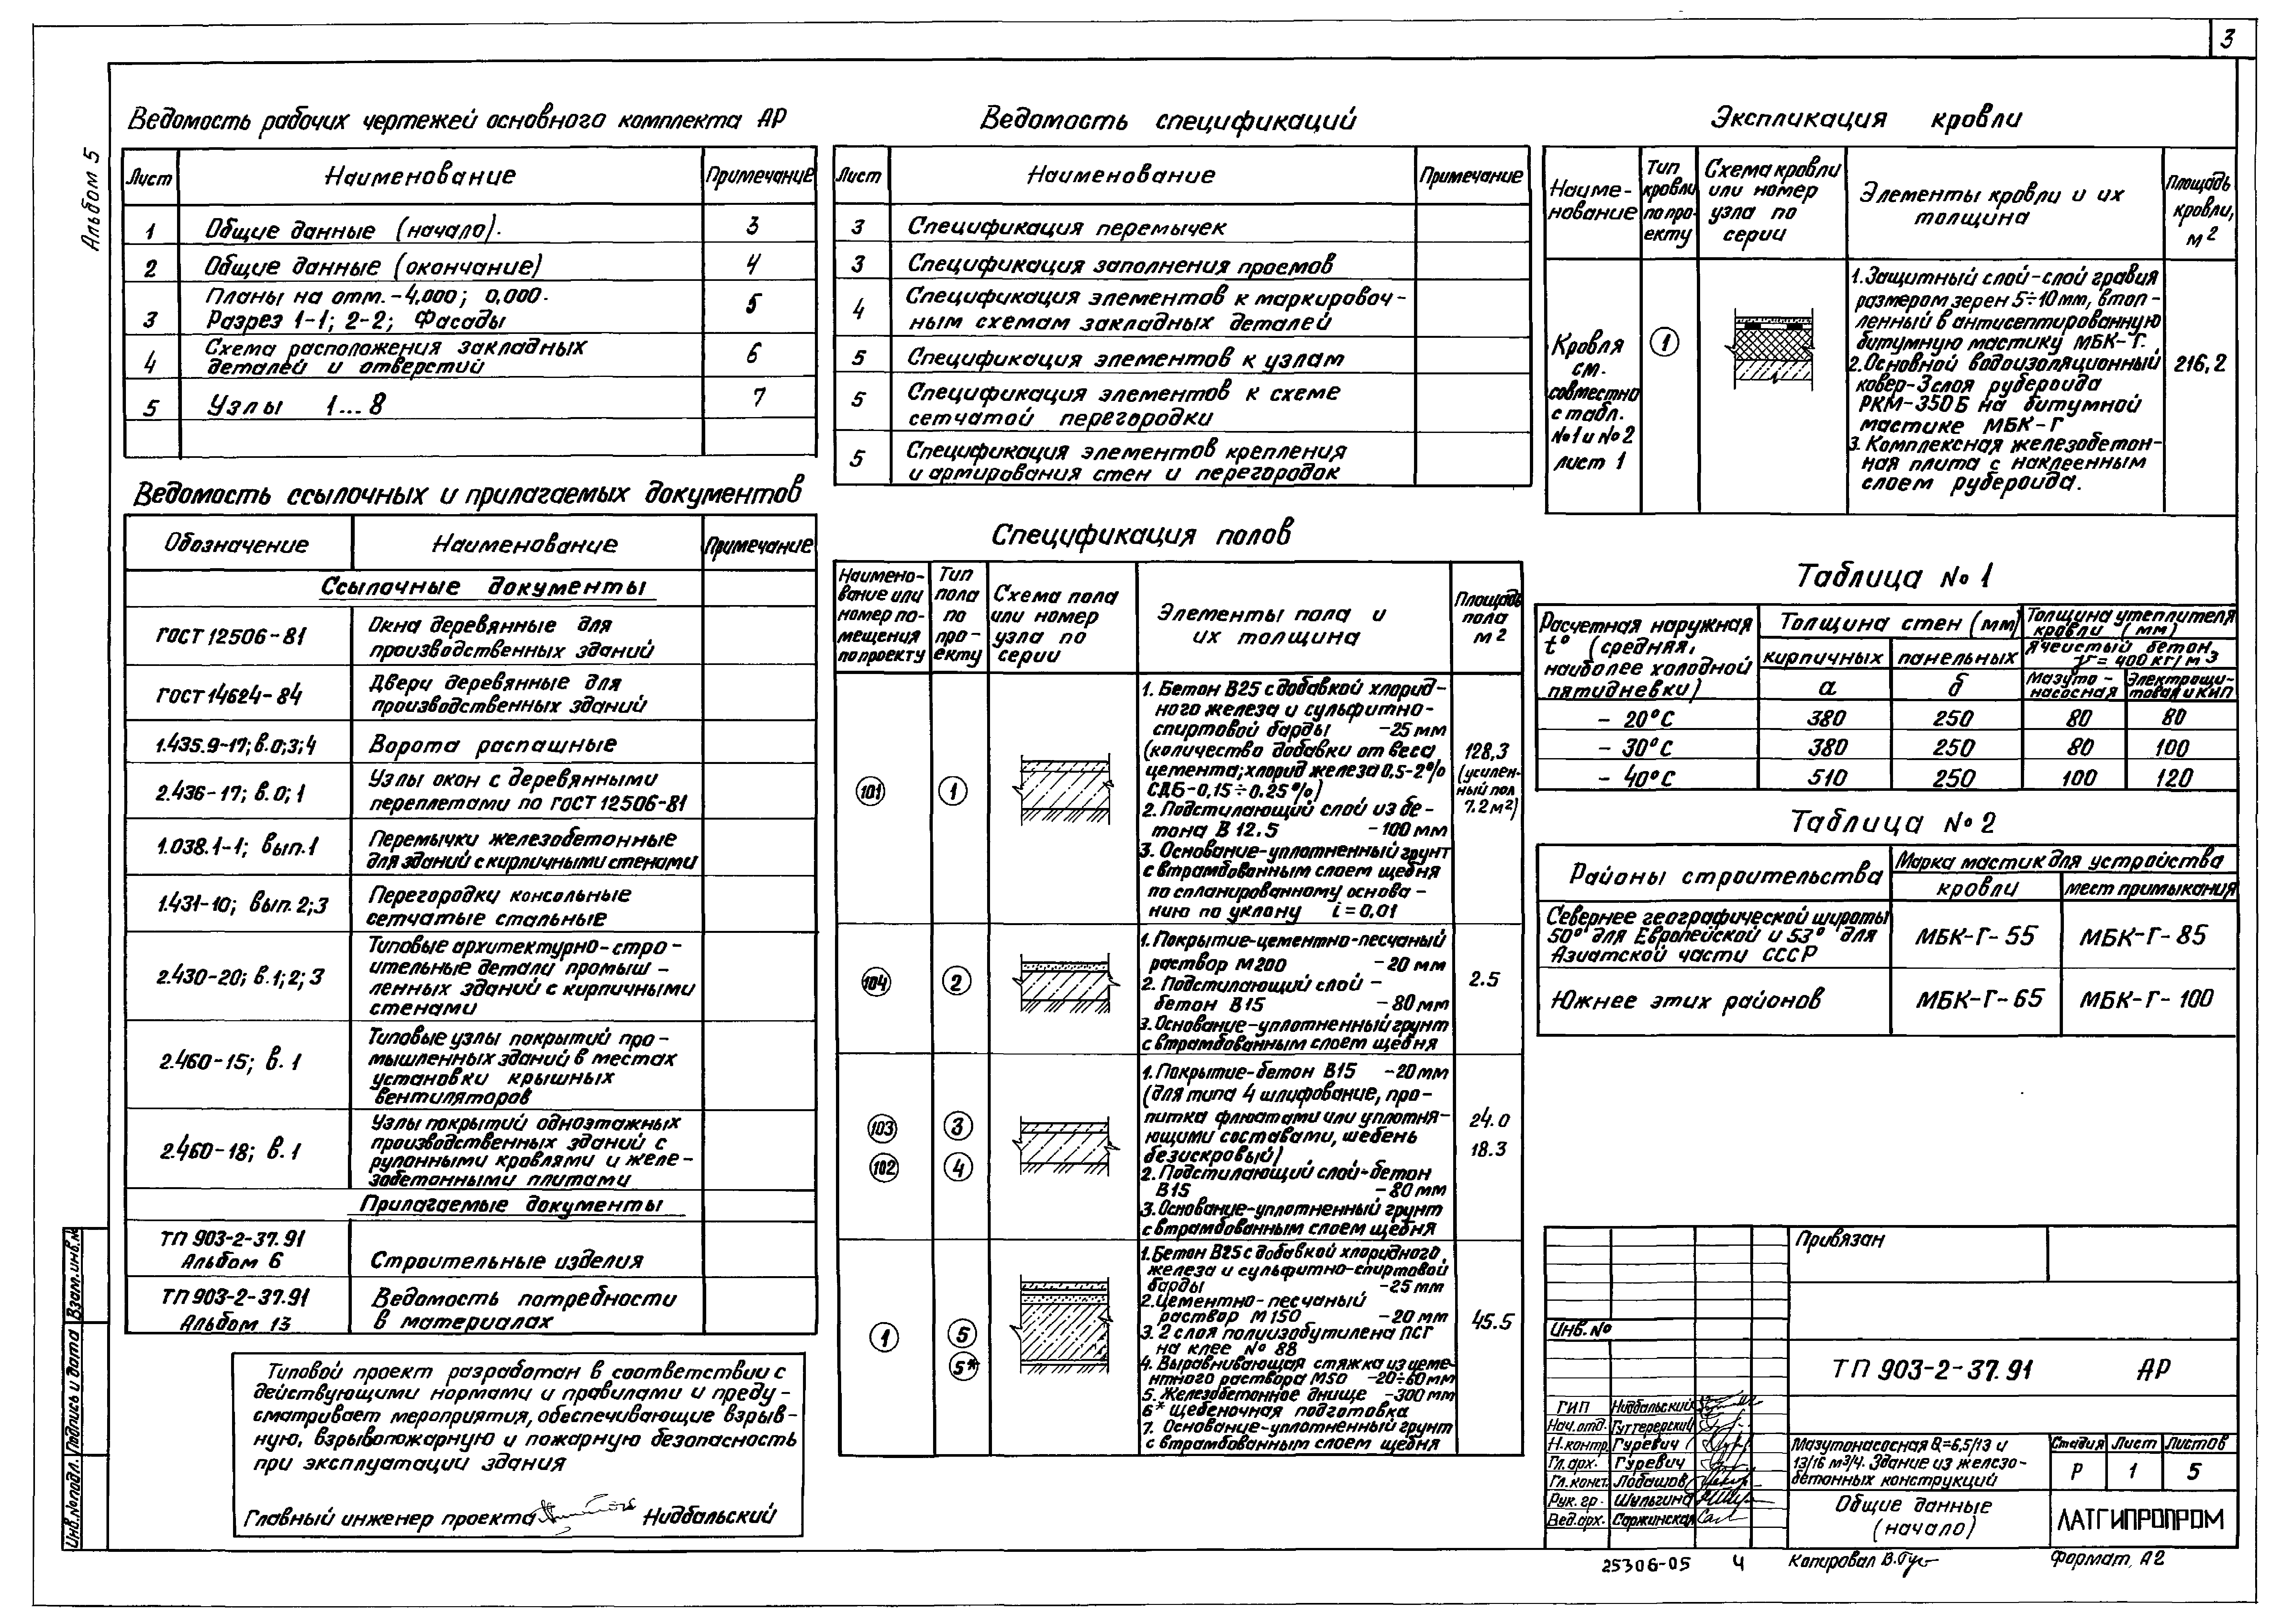 3
Альбом 5
Ведомость рабочих чертежей основного комплекта АР
Лист Наименование Примечание
1 Общие данные (начало). 3
2 Общие данные (окончание) 4
Планы на отм. -4,000; 0,000.
3 Разрез 1-1; 2-2; Фасады 5
Схема расположения закладных
4 деталей и отверстий 6
5 Узлы 1...8 7
Ведомость ссылочных и прилагаемых документов
Обозначение Наименование Примечание
Ссылочные документы
ГОСТ 12506-81 Окна деревянные для
производственных зданий
ГОСТ 14624-84 Двери деревянные для
производственных зданий
1.435.9-17; в.0;3;4 Ворота распашные
2.436-17; в.0;1 Узлы окон с деревянными
переплетами по ГОСТ 12506-81
1.038.1-1; вып.1 Перемычки железобетонные
для зданий с кирпичными стенами
1.431-10; вып.2;3 Перегородки консольные
сетчатые стальные
Типовые архитектурно-стро-
2.430-20; в.1; 2; 3 ительные детали промыш-
ленных зданий с кирпичными
стенами
Типовые узлы покрытий про-
2.460-15; в. 1 мышленных зданий в местах
установки крышных
вентиляторов
Узлы покрытий одноэтажных
производственных зданий с
2.460-18; в. 1 рулонными кровлями и желе-
зобетонными плитами
Прилагаемые документы
ТП 903-2-37.91
Альбом 6 Строительные изделия
ТП 903-2-37.91 Ведомость потребности
Альбом 13 в материалах
Типовой проект разработан в соответствии с
действующими нормами и правилами и преду-
сматривает мероприятия, обеспечивающие взрыв-
ную, взрывопожарную и пожарную безопасность
при эксплуатации здания
Главный инженер проекта Нидбальский
Инв.№ подл. Подпись и дата Взам.инв.№
Ведомость спецификаций
Лист Наименование Примечание
3 Спецификация перемычек
3 Спецификация заполнения проемов
4 Спецификация элементов к маркировоч-
ным схемам закладных деталей
5 Спецификация элементов к узлам
5 Спецификация элементов к схеме
сетчатой перегородки
5 Спецификация элементов крепления
и армирования стен и перегородок
Спецификация полов
Наимено-
вание или
номер по-
мещения
по проекту
Тип
пола
по
про-
екту
Схема пола
или номер
узла по
серии
Элементы пола и
их толщина
Площадь
пола
м2
101 1
1. Бетон В25 с добавкой хлорид-
ного железа и сульфитно-
спиртовой барды -25 мм
(количество добавки от веса
цемента; хлорид железа 0,5-2%
СДБ-0,15÷0.25%)
2. Подстилающий слой из бе-
тона В 12.5 -100 мм
3. Основание-уплотненный грунт
с втрамбованным слоем щебня
по спланированному основа-
нию по уклону i=0,01
128,3
(усилен-
ный пол
7.2 м²)
104 2
1. Покрытие-цементно-песчаный
раствор М200 -20 мм
2. Подстилающий слой -
бетон В15 -80 мм
3. Основание-уплотненный грунт
с втрамбованным слоем щебня
2.5
103 3
102 4
1. Покрытие-бетон В15 -20 мм
(для типа 4 шлифование, про-
питка флюатами или уплотня-
ющими составами, щебень
безискровый)
2. Подстилающий слой-бетон
В15 -80 мм
3. Основание-уплотненный грунт
с втрамбованным слоем щебня
24.0
18.3
1 5
5*
1. Бетон В25 с добавкой хлоридного
железа и сульфитно-спиртовой
барды -25 мм
2. Цементно-песчаный
раствор М150 -20 мм
3. 2 слоя полиизобутилена ПСГ
на клее № 88
4. Выравнивающая стяжка из цеме-
нтного раствора М50 -20÷60мм
5. Железобетонное днище -300 мм
6* щебеночная подготовка
7. Основание-уплотненный грунт
с втрамбованным слоем щебня
45.5
Экспликация кровли
Наиме-
нование
Тип
кровли
по про-
екту
Схема кровли
или номер
узла по
серии
Элементы кровли и их
толщина
Площадь
кровли,
м2
Кровля
см.
совместно
с табл.
№1 и №2
лист 1
1
1. Защитный слой-слой гравия
размером зерен 5÷10 мм, втоп-
ленный в антисептированную
битумную мастику МБК-Г.
2. Основной водоизоляционный
ковер-3 слоя рубероида
РКМ-350Б на битумной
мастике МБК-Г
3. Комплексная железобетон-
ная плита с наклеенным
слоем рубероида.
216,2
Таблица № 1
Расчетная наружная
t° (средняя,
наиболее холодной
пятидневки)
Толщина стен (мм)
кирпичных панельных
а б
Толщина утеплителя
кровли (мм)
Ячеистый бетон
γ=400 кг/м3
Мазуто-
насосная
Электрощи-
товая и КИП
- 20°С 380 250 80 80
- 30°С 380 250 80 100
- 40°С 510 250 100 120
Таблица № 2
Районы строительства
Марка мастик для устройства
кровли мест примыкания
Севернее географической широты
50° для Европейской и 53° для
Азиатской части СССР
МБК-Г-55 МБК-Г-85
Южнее этих районов МБК-Г-65 МБК-Г-100
Привязан
Инв. №
ТП 903-2-37.91 АР
ГИП Нидбальский
Нач.отд. Гуттерерский
Н.контр. Гуревич
Гл.арх. Гуревич
Гл.конст. Лобашов
Рук.гр. Шульгина
Вед.арх. Саржинская
Мазутонасосная Q=6,5/13 и
13/16 м³/ч. Здание из железо-
бетонных конструкций
Стадия Лист Листов
Р 1 5
Общие данные
(начало)
ЛАТГИПРОПРОМ
25306-05 4 Копировал В.Гус Формат А2